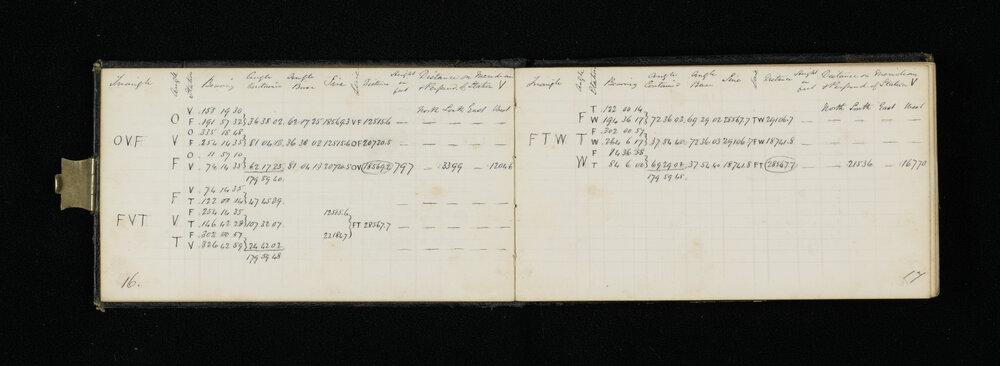 Triangle Angle Station Bearing Angle Contained Angle Base Side Distance Height in feet Distance on Meridian & Perpend. of Station V
North South East West
V .158 19 30
O F .191 57 32 } 36 38 02 . 62 17 25 18569.3 V F 12815.6 — — — — —
O .335 18 48
OVF V F .254 14 35 } 81 04 13 . 36 38 02 12815.6 O F 20720.5 — — — — —
O . 11 57 10
F V . 74 14 35 } 62 17 25 . 81 04 13 20720.5 O V 18569.2 797 — 3399 — 12046
179 59 40
V . 74 14 35
F T .122 00 14 } 47 45 39 — — — — —
F .254 14 35 12815.6
FVT V T .146 42 28 } 107 32 07 } FT 28567.7 — — — — —
F .302 00 57 22184.7
T V .326 42 59 } 24 42 02 — — — — —
179 59 48
16.
Triangle Angle Station Bearing Angle Contained Angle Base Side Distance Height in feet Distance on Meridian & Perpend of Station V
North South East West
T .122 00 14
F W .194 36 17 } 72 36 03 . 69 29 02 28567.7 T W 29106.7 — — — — —
F .302 00 57
FTW T W .264 6 17 } 37 54 40 . 72 36 03 29106.7 F W 18741.8 — — — — —
F 84 36 38
W T 84 6 02 } 69 29 02 . 37 54 40 18741.8 F T 28567.7 — — 21536 — 16770
179 59 45
17